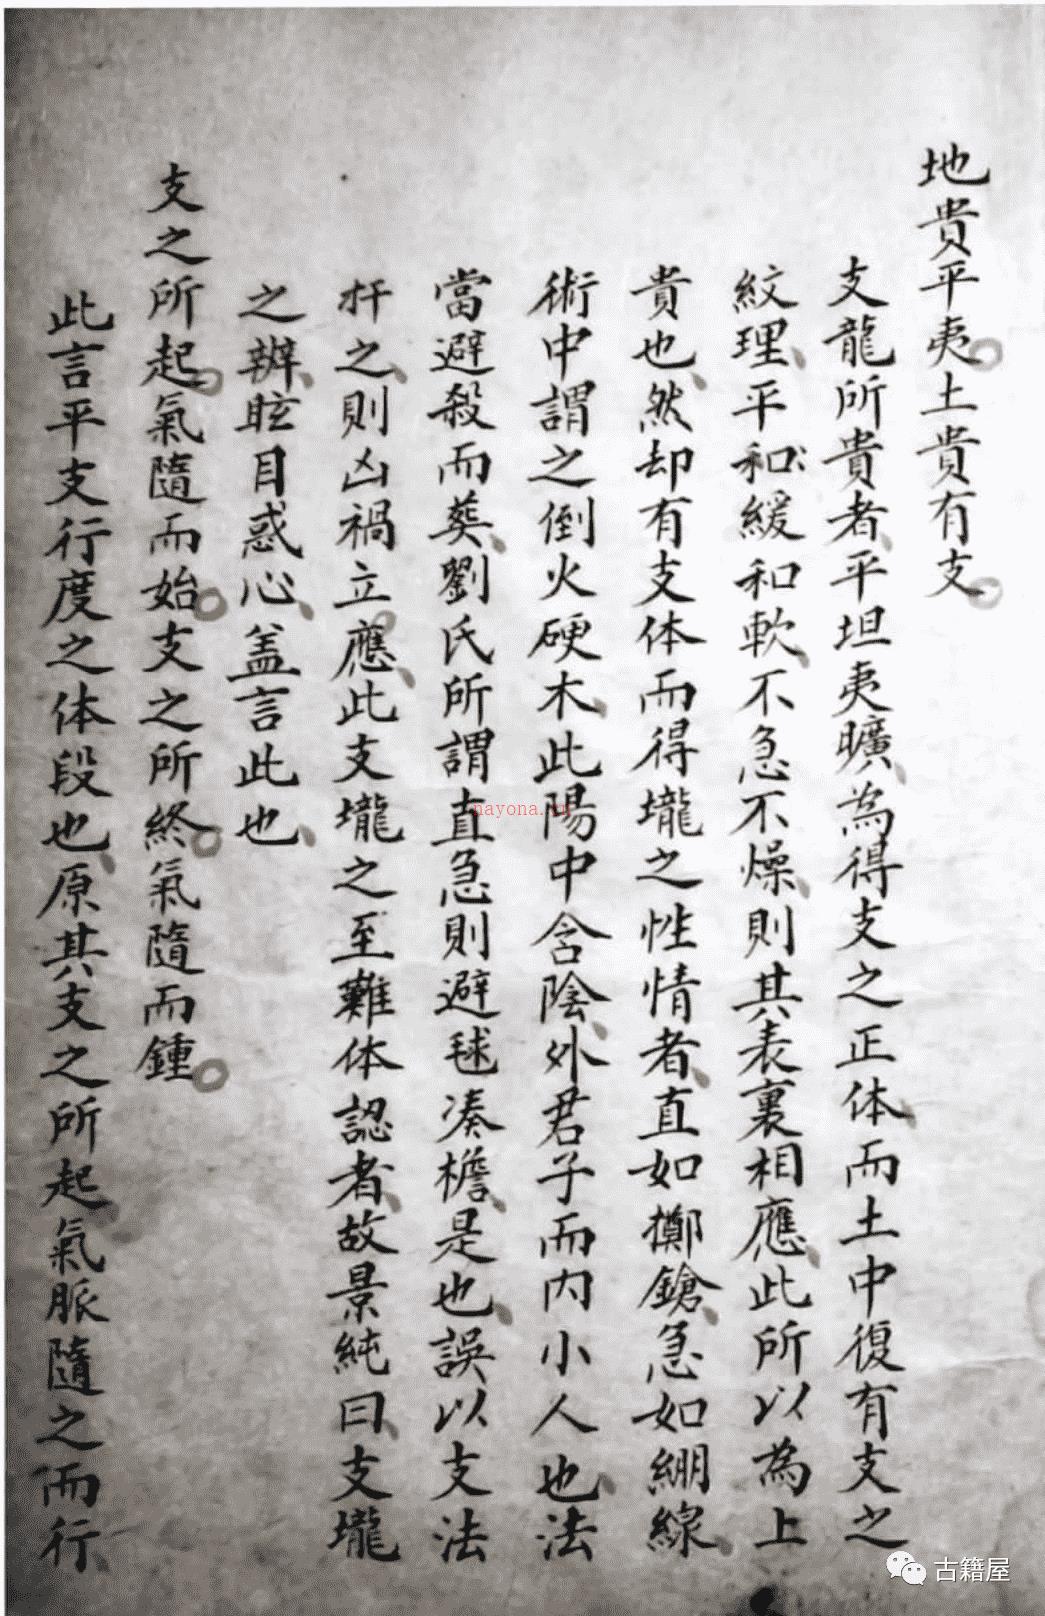 地貴平夷土貴有支
支龍所貴者平坦夷曠為得支之正体而土中復有支之
紋理平和緩和軟不急不燥則其表裏相應此所以為上
貴也然却有支体而得壠之性情者直如擲鎗急如綳線
術中謂之倒火硬木此陽中含陰外君子而内小人也法
當避殺而葬劉氏所謂直急則避毬凑檐是也誤以支法
扞之則凶禍立應此支壠之至難体認者故景純曰支壠
之辨眩目惑心盖言此也
支之所起氣隨而始支之所終氣隨而鍾
此言平支行度之体段也原其支之所起氣脈隨之而行
nayona.cn
古籍屋